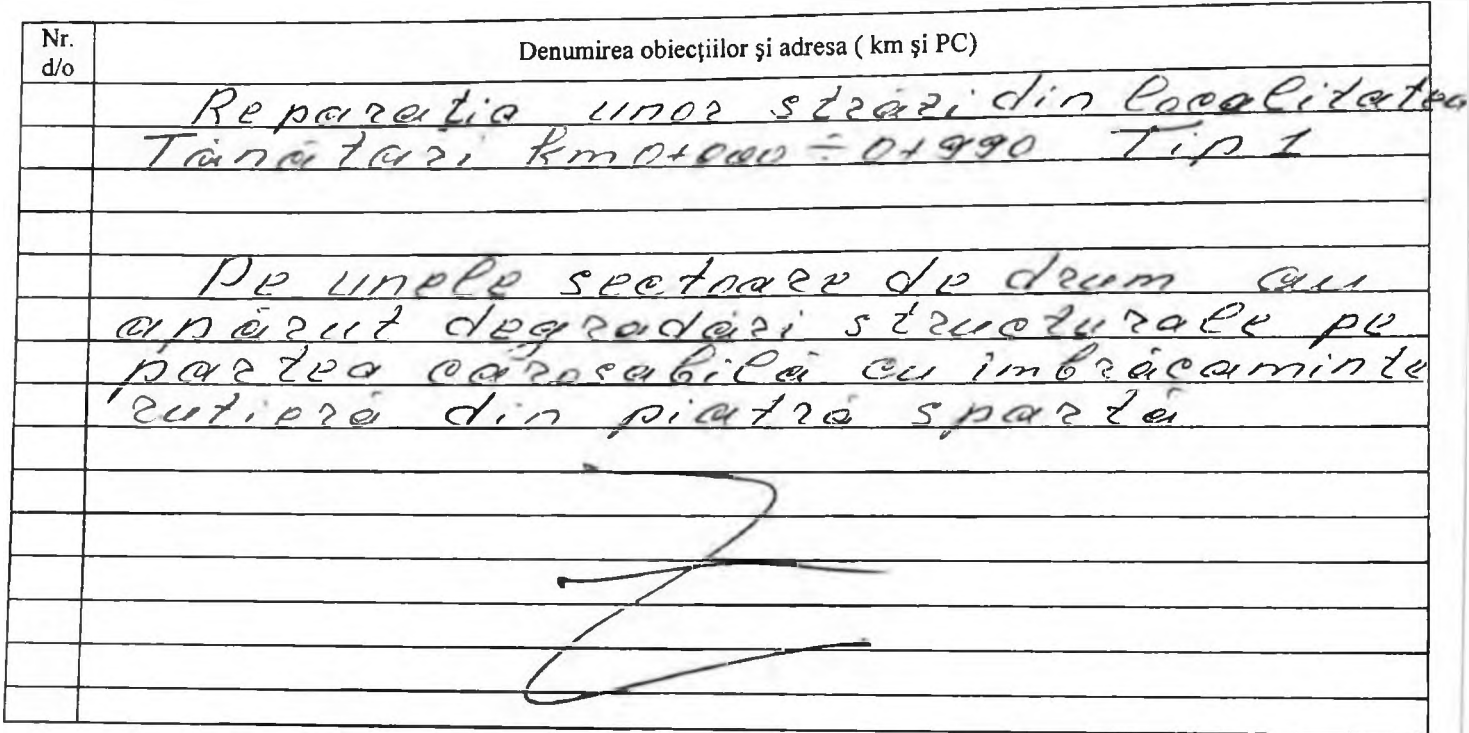 Nr. d/o
Denumirea obiecțiilor și adresa ( km și PC)
Reparatia unor străzi din localitatea
Tănătari km 0+000 ÷ 0+990 Tip 1
Pe unele sectoare de drum au
apărut degradări structurale pe
partea cărosabilă cu imbrăcaminte
rutieră din piatră spartă